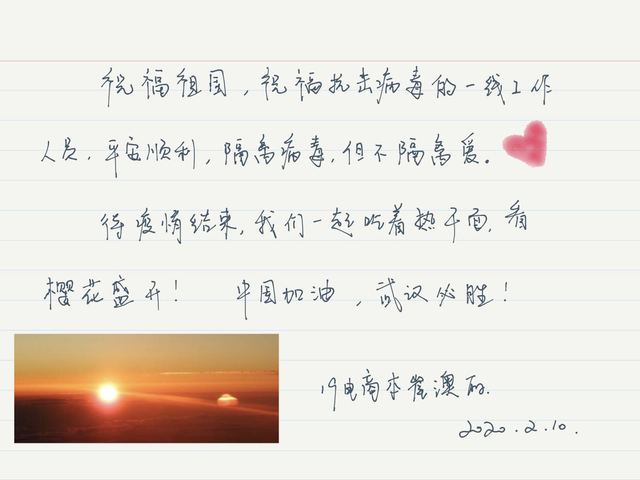 祝福祖国，祝福抗击病毒的一线工作
人员，平安顺利，隔离病毒，但不隔离爱。
待疫情结束，我们一起吃着热干面，看
樱花盛开！ 中国加油，武汉必胜！
19电商本崔澳丽
2020.2.10.